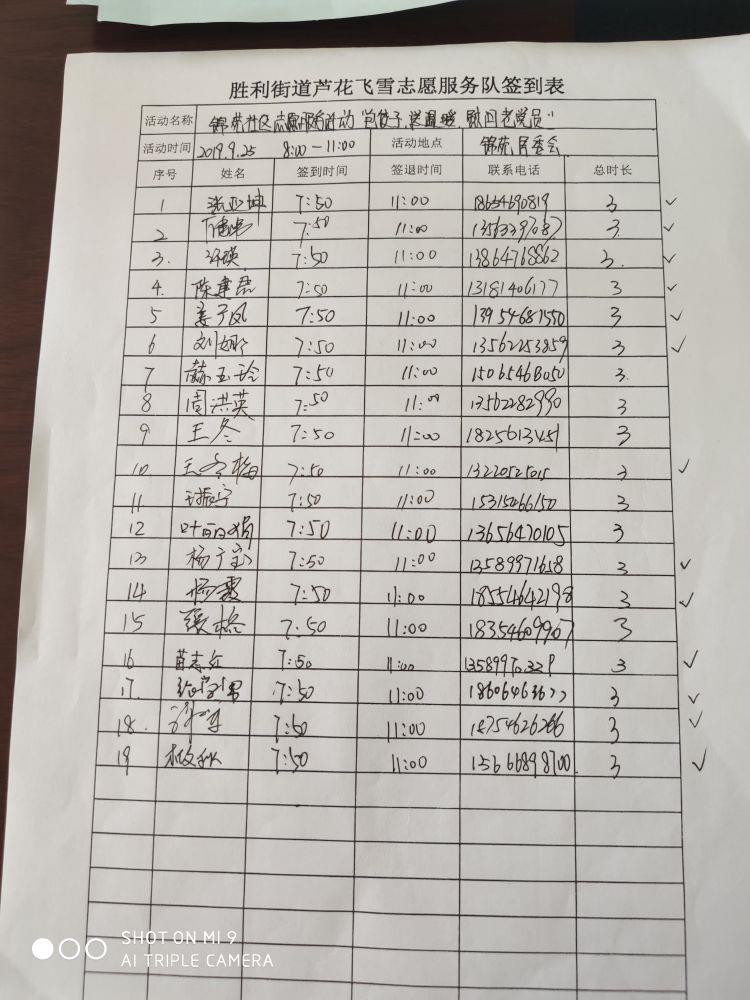 胜利街道芦花飞雪志愿服务队签到表
活动名称 锦苑社区志愿服务活动"包饺子,送温暖,慰问老党员"
活动时间 2019.9.25 8:00-11:00 活动地点 锦苑居委会
序号 姓名 签到时间 签退时间 联系电话 总时长
1 张亚坤 7:50 11:00 18654690819 3 ✓
2 7:50 11:00 3 ✓
3. 许瑛 7:50 11:00 13864768862 3. ✓
4. 陈建君 7:50 11:00 13181406177 3 ✓
5 姜子凤 7:50 11:00 13954681550 3 ✓
6 刘娜 7:50 11:00 13562253859 3 ✓
7 赫玉玲 7:50 11:00 3
8 周洪英 7:50 11:00 13562282990 3
9 王冬 7:50 11:00 1825613451 3
10. 王冬梅 7:50 11:00 13220525015 3 ✓
11 王振宁 7:50 11:00 15315466150 3
12 叶丽娟 7:50 11:00 13656470105 3
13 杨广宝 7:50 11:00 13589971658 3 ✓
14 杨霞 7:50 11:00 18554642198 3 ✓
15 张格 7:50 11:00 18354609967 3
16 苗志红 7:50 11:00 3 ✓
17. 7:50 11:00 3 ✓
18. 7:50 11:00 3 ✓
19 7:50 11:00 13666898700 3 ✓
SHOT ON MI 9
AI TRIPLE CAMERA